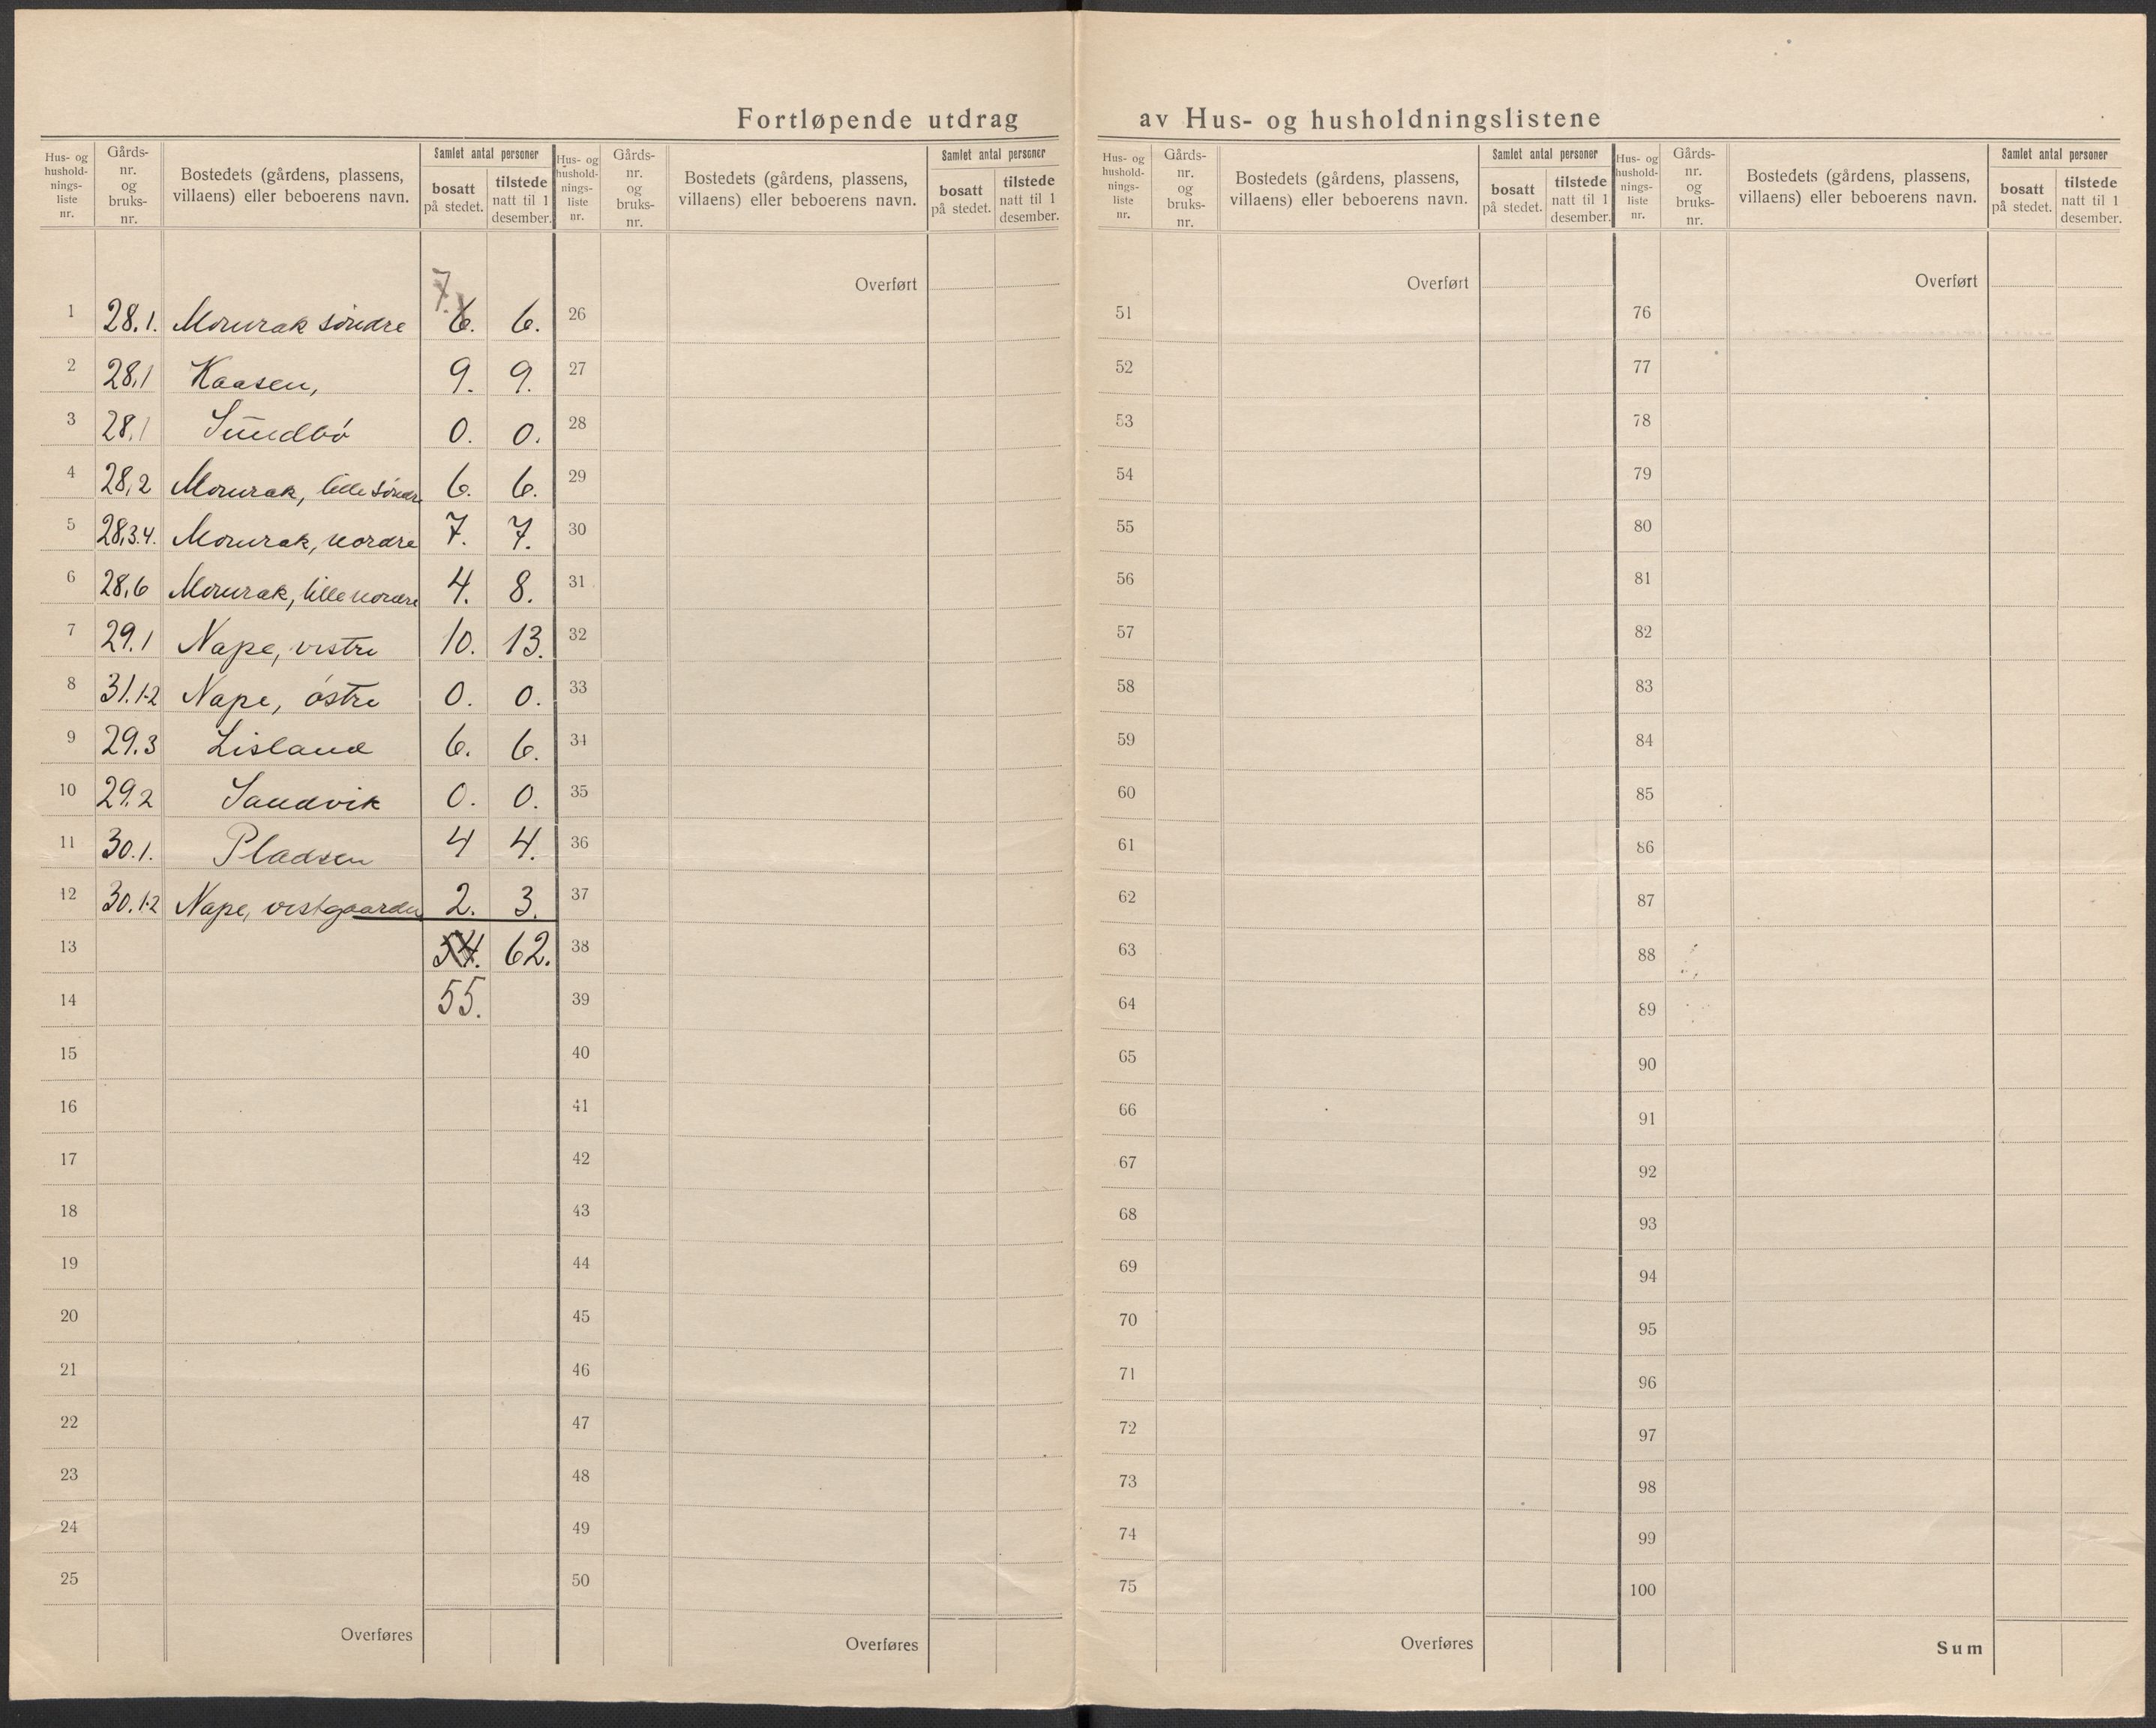 Fortløpende utdrag av Hus- og husholdningslistene
Hus- og hushold-nings-liste nr. Gårds-nr. og bruks-nr. Bostedets (gårdens, plassens, villaens) eller beboerens navn. Samlet antal personer bosatt på stedet. tilstede natt til 1 desember.
7.
1 28.1. Momrak søndre 6. 6.
2 28,1 Kaasen, 9. 9.
3 28,1 Sundbö 0. 0.
4 28,2 Momrak, lille söndre 6. 6.
5 28,3.4. Momrak, nordre 7. 7.
6 28,6 Momrak, lille nordre 4. 8.
7 29.1 Nape, vestre 10. 13.
8 31.1-2 Nape, östre 0. 0.
9 29.3 Lisland 6. 6.
10 29.2 Sandvik 0. 0.
11 30.1. Pladsen 4 4.
12 30.1-2 Nape, vestgaarden 2. 3.
13 54. 62.
14 55.
15
16
17
18
19
20
21
22
23
24
25
Overføres
Hus- og hushold-nings-liste nr. Gårds-nr. og bruks-nr. Bostedets (gårdens, plassens, villaens) eller beboerens navn. Samlet antal personer bosatt på stedet. tilstede natt til 1 desember.
Overført
26
27
28
29
30
31
32
33
34
35
36
37
38
39
40
41
42
43
44
45
46
47
48
49
50
Overføres
Hus- og hushold-nings-liste nr. Gårds-nr. og bruks-nr. Bostedets (gårdens, plassens, villaens) eller beboerens navn. Samlet antal personer bosatt på stedet. tilstede natt til 1 desember.
Overført
51
52
53
54
55
56
57
58
59
60
61
62
63
64
65
66
67
68
69
70
71
72
73
74
75
Overføres
Hus- og hushold-nings-liste nr. Gårds-nr. og bruks-nr. Bostedets (gårdens, plassens, villaens) eller beboerens navn. Samlet antal personer bosatt på stedet. tilstede natt til 1 desember.
Overført
76
77
78
79
80
81
82
83
84
85
86
87
88
89
90
91
92
93
94
95
96
97
98
99
100
Sum